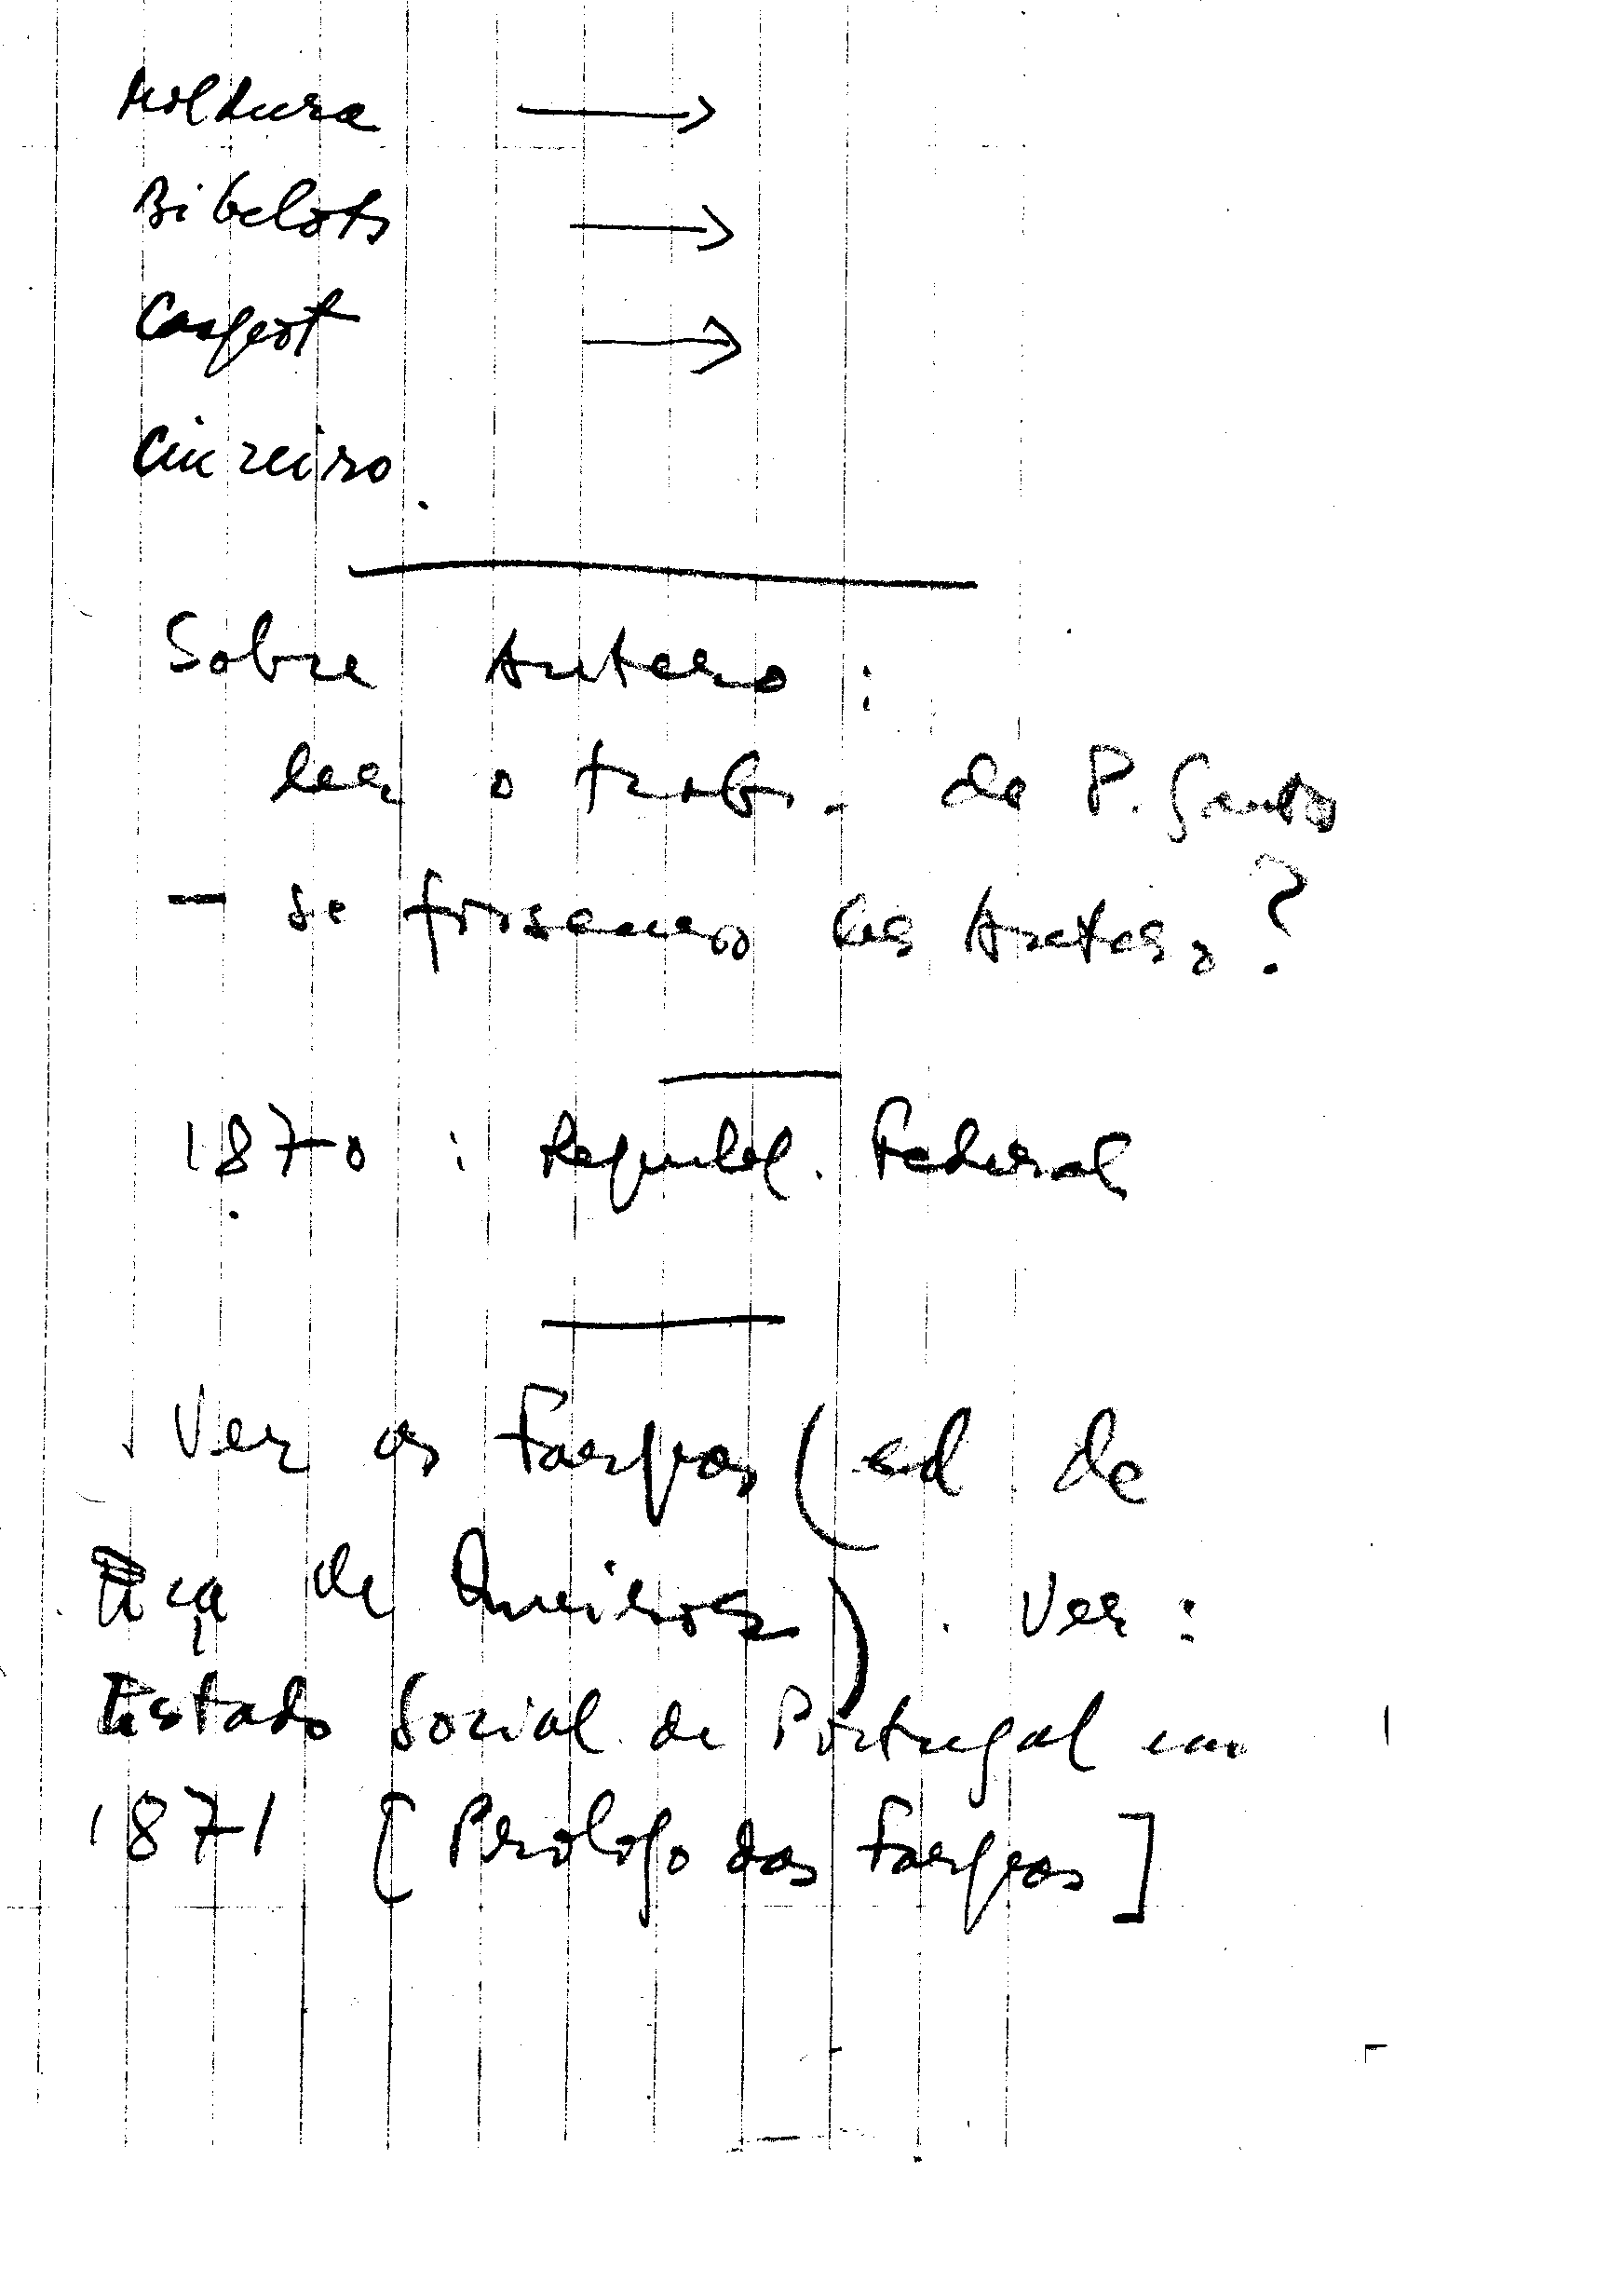 Moldura →
Bibelots →
→
Cinzeiro.
Sobre Antero:
ler o trab. de P. Santos
- se Antero?
1870: Republ. Federal
Ver as Farpas (ed de
Eça de Queiroz). Ver:
Estado Social de Portugal em
1871 [Prólogo das Farpas]